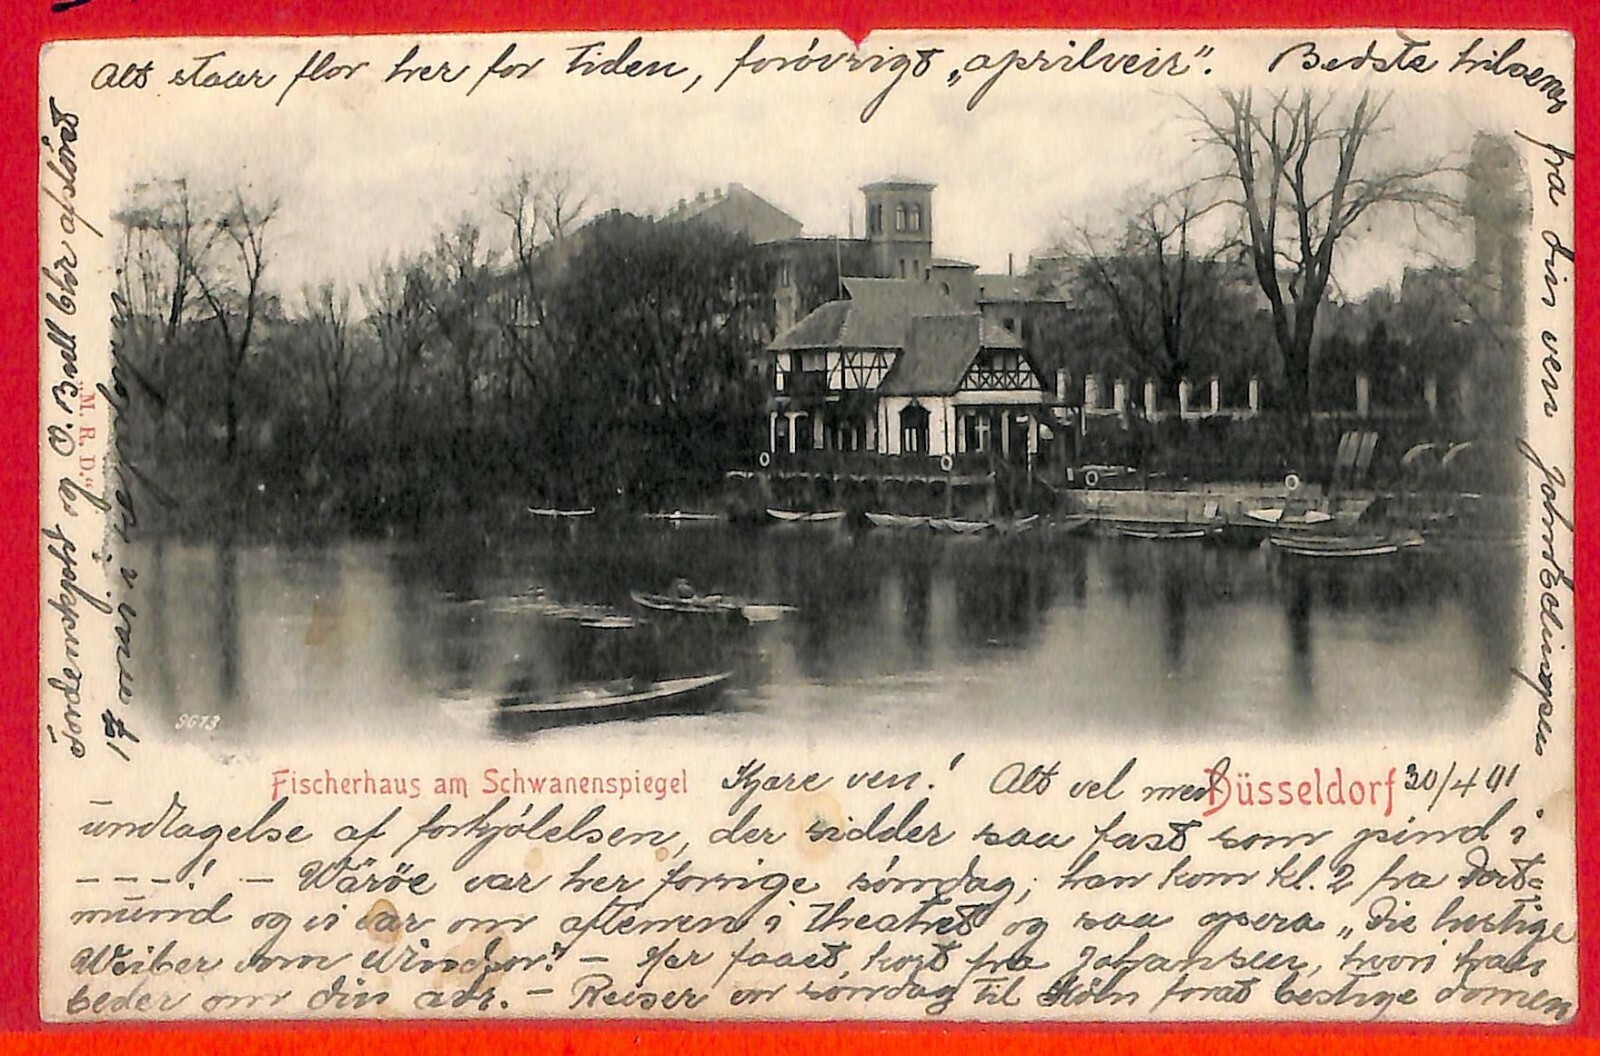 Fischerhaus am Schwanenspiegel Kjære ven! Alt vel med Düsseldorf 30/4 01
undtagelse af forkjølelsen, der sidder saa fast som pind i
- - - -! - Wäröe var her forrige söndag; han kom kl. 2 fra Dort=
mund og vi var om aftenen i Theatret og saa opera „Die lustige
Weiber vom Windsor". - Har faaet kort fra Johansen, hvori han
beder om din adr. - Reiser om söndag til Köln forat bestige domen
Alt staar flor her for tiden, foróvrigt „aprilveir". Bedste hilsener
fra din ven
Tordenskjold og O. Bull blir afsløret
17 mai
"M. R. D."
9673